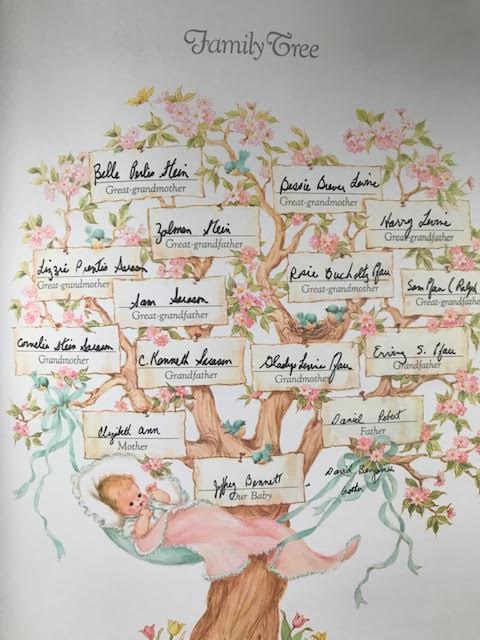 Family Tree
Belle Perlis Stein
Great-grandmother
Bessie Brewer Levine
Great-grandmother
Zalman Stein
Great-grandfather
Harry Levine
Great-grandfather
Lizzie Prentis Sarason
Great-grandmother
Rosie Bucholtz Pfau
Great-grandmother
Sam Sarason
Great-grandfather
Sam Pfau (Ralph
Great-grandfather
Cornelia Stein Sarason
Grandmother
C. Kenneth Sarason
Grandfather
Gladys Levine Pfau
Grandmother
Erving S. Pfau
Grandfather
Elizabeth Ann
Mother
Daniel Robert
Father
Jeffrey Bennett
Our Baby
David Benjamin
brother